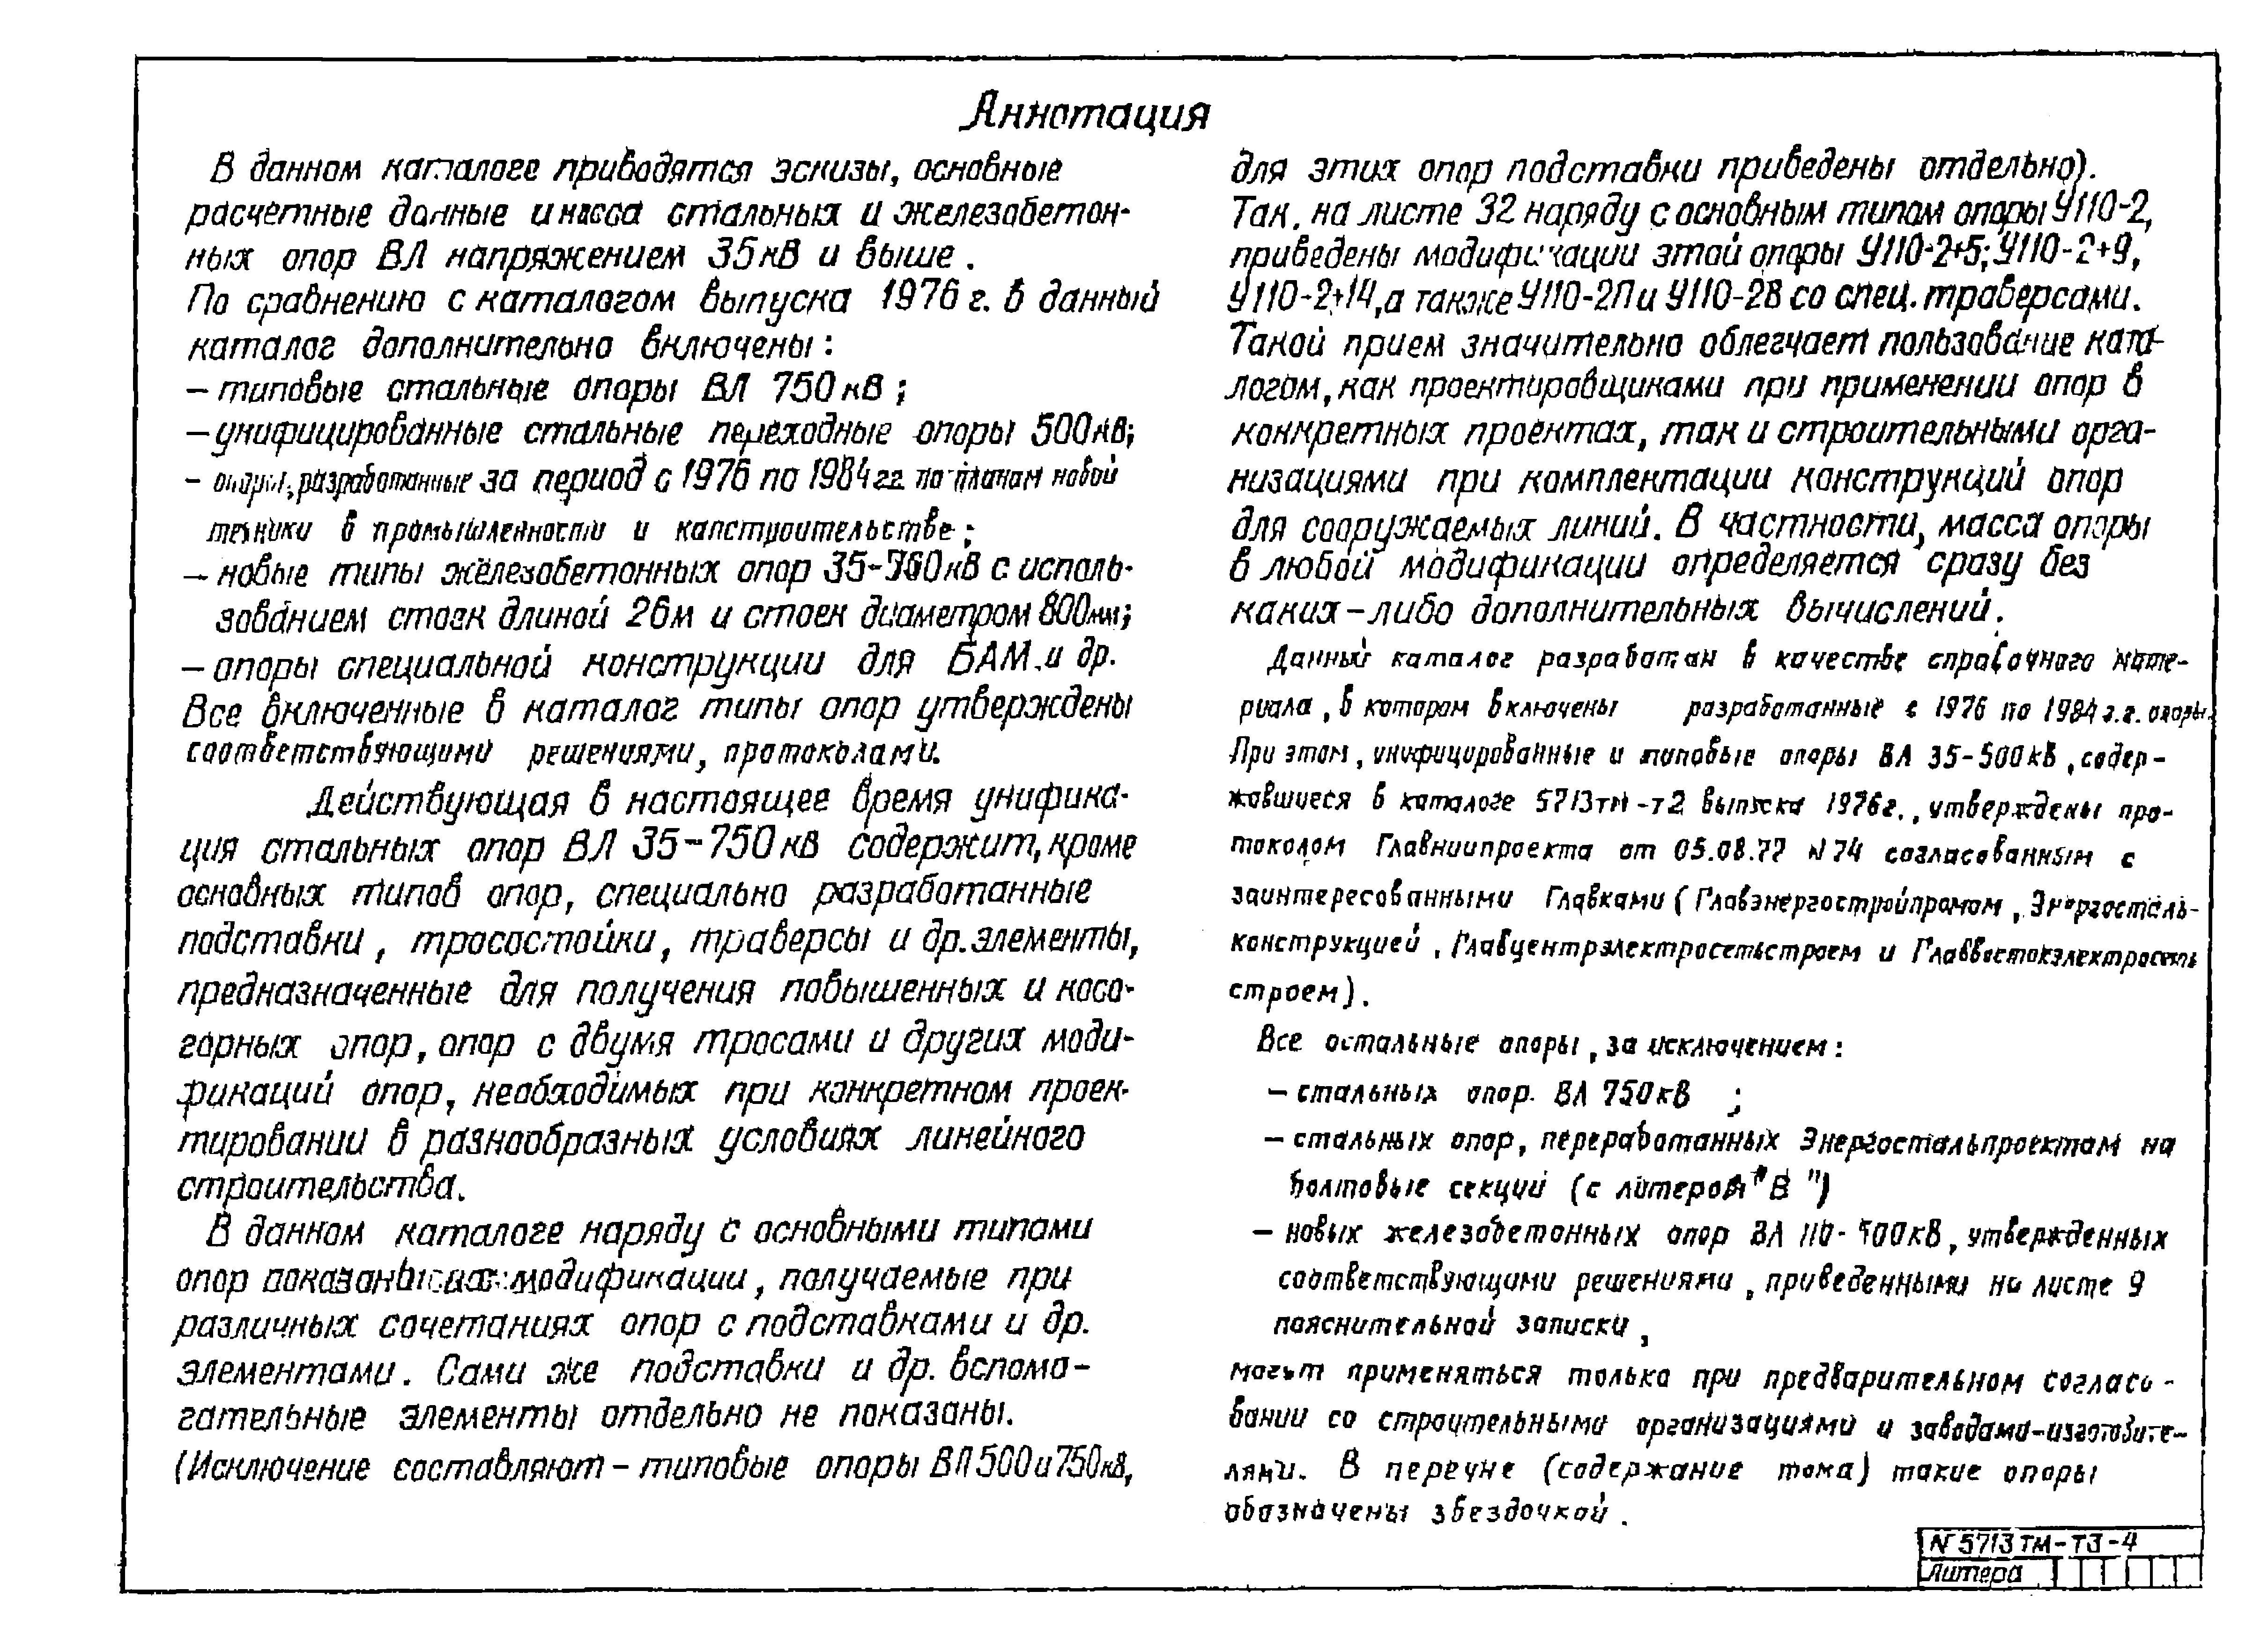 Аннотация
В данном каталоге приводятся эскизы, основные
расчетные данные и масса стальных и железобетон-
ных опор ВЛ напряжением 35кВ и выше.
По сравнению с каталогом выпуска 1976 г. в данный
каталог дополнительно включены:
– типовые стальные опоры ВЛ 750 кВ;
– унифицированные стальные переходные опоры 500кВ;
– опоры, разработанные за период с 1976 по 1984 гг. по планам новой
техники в промышленности и капстроительстве;
– новые типы железобетонных опор 35- кВ с исполь-
зованием стоек длиной 26м и стоек диаметром 800мм;
– опоры специальной конструкции для БАМ и др.
Все включенные в каталог типы опор утверждены
соответствующими решениями, протоколами.
Действующая в настоящее время унифика-
ция стальных опор ВЛ 35-750 кВ содержит, кроме
основных типов опор, специально разработанные
подставки, тросостойки, траверсы и др. элементы,
предназначенные для получения повышенных и косо-
горных опор, опор с двумя тросами и других моди-
фикаций опор, необходимых при конкретном проек-
тировании в разнообразных условиях линейного
строительства.
В данном каталоге наряду с основными типами
опор показаны их модификации, получаемые при
различных сочетаниях опор с подставками и др.
элементами. Сами же подставки и др. вспомо-
гательные элементы отдельно не показаны.
(Исключение составляют – типовые опоры ВЛ 500 и 750кВ,
для этих опор подставки приведены отдельно).
Так, на листе 32 наряду с основным типом опоры У110-2,
приведены модификации этой опоры У110-2+5; У110-2+9,
У110-2+14, а также У110-2П и У110-2В со спец. траверсами.
Такой прием значительно облегчает пользование ката-
логом, как проектировщиками при применении опор в
конкретных проектах, так и строительными орга-
низациями при комплектации конструкций опор
для сооружаемых линий. В частности, масса опоры
в любой модификации определяется сразу без
каких-либо дополнительных вычислений.
Данный каталог разработан в качестве справочного мате-
риала, в котором включены разработанные с 1976 по 1984 г.г. опоры.
При этом, унифицированные и типовые опоры ВЛ 35-500кВ, содер-
жавшиеся в каталоге 5713тм-т2 выпуска 1976г., утверждены про-
токолом Главниипроекта от 05.08.77 N 74 согласованным с
заинтересованными Главками (Главэнергостройпромом, Энергосталь-
конструкцией, Главцентрэлектросетьстроем и Главвостокэлектросеть
строем).
Все остальные опоры, за исключением:
– стальных опор. ВЛ 750кВ ;
– стальных опор, переработанных Энергостальпроектом на
болтовые секции (с литерой "В")
– новых железобетонных опор ВЛ 110-500кВ, утвержденных
соответствующими решениями, приведенными на листе 9
пояснительной записки,
могут применяться только при предварительном согласо-
вании со строительными организациями и заводами-изготовите-
лями. В перечне (содержание тома) такие опоры
обозначены звездочкой.
N 5713 тм-т3-4
Литера